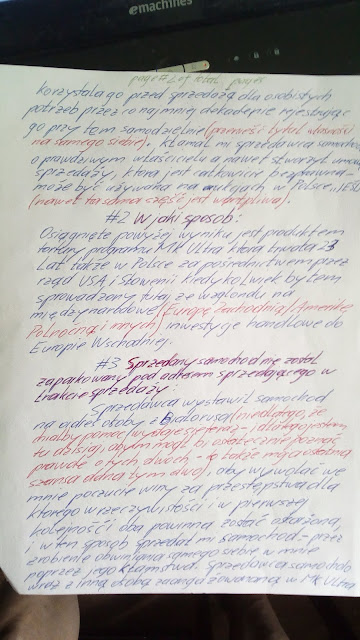 emachines
page #2 of total pages
korzystała go przed sprzedażą dla osobistych
potrzeb przez co najmniej dekadę nie rejestrując
go przy tym samodzielnie (przenieść tytuł własności
na samego siebie). Kłamał mi sprzedawca samochodu
o prawdziwym właścicielu a nawet stworzył umowę
sprzedaży, która jest całkowicie bezprawna -
może być używana na aukcjach w Polsce,
(nawet ta sama część jest wątpliwa).
#2 W jaki sposób:
Osiągnięte powyżej wyniku jest produktem
tortury programu MK Ultra która trwała 23
Lat także w Polsce za pośrednictwem przez
rząd USA i Słowenii kiedykolwiek byłem
sprowadzony tutaj ze względu na
międzynarodowe (Europę Zachodnią/Amerikę
Północną i innych) inwestycje handlowe do
Europie Wschodniej.
#3 Sprzedany samochod nie został
zaparkowany pod adresem sprzedającego w
trakcie sprzedaży:
Sprzedawca wystawił samochod
na adres osoby z Białorusa (nie dlatego, że
chciałby pomóc - i dlatego jestem
tu dzisiaj, abym mógł bi ostatecznie poznać
prawdę o tych dwóch - to także moja ostatnia
szansa dla na tym dwoj), aby wywołać we
mnie poczucie winy za przestępstwa dla
którego w rzeczywistości i w pierwszej
kolejności oba powinna zostać oskarżona,
i w ten sposób sprzedać mi samochod - przez
zrobienie obwiniania samego siebie w mnie
poprzez jego kłamstwa. Sprzedawca samochodu
wraz z inną osobą zaangażowananą w MK Ultra